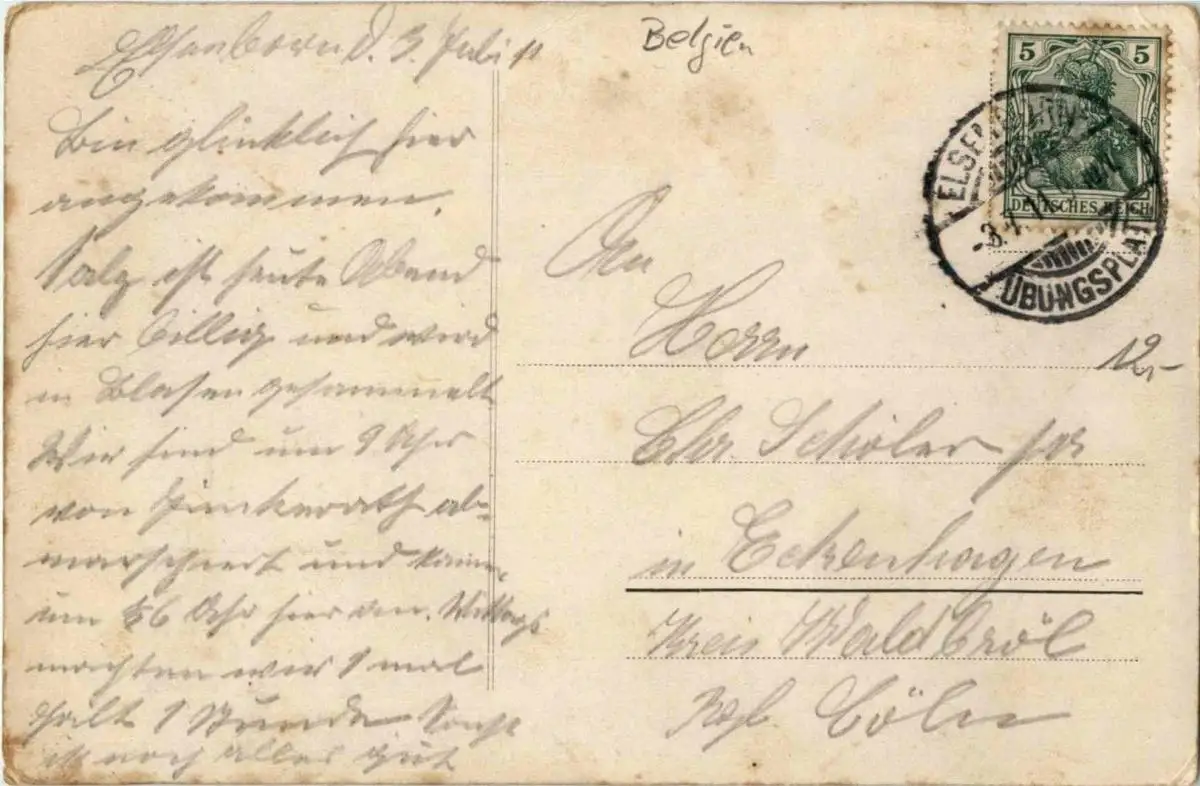 Elsenborn d. 3. Juli 11
Bin glücklich hier
angekommen.
Salz ist heute Abend
hier billig und wird
in Blasen gesammelt
Wir sind um 9 Uhr
von ab-
marschiert und kamen
um ½6 Uhr hier an. Mittags
machten wir 1 mal
Halt 1 Stunde Sonst
ist noch alles gut
Belgien
5 5
DEUTSCHES REICH
ÜBUNGSPLATZ
An
Herrn
Chr. Schöler jr
in Eckenhagen
Kreis Waldbröl
Bezk. Cöln
12,-